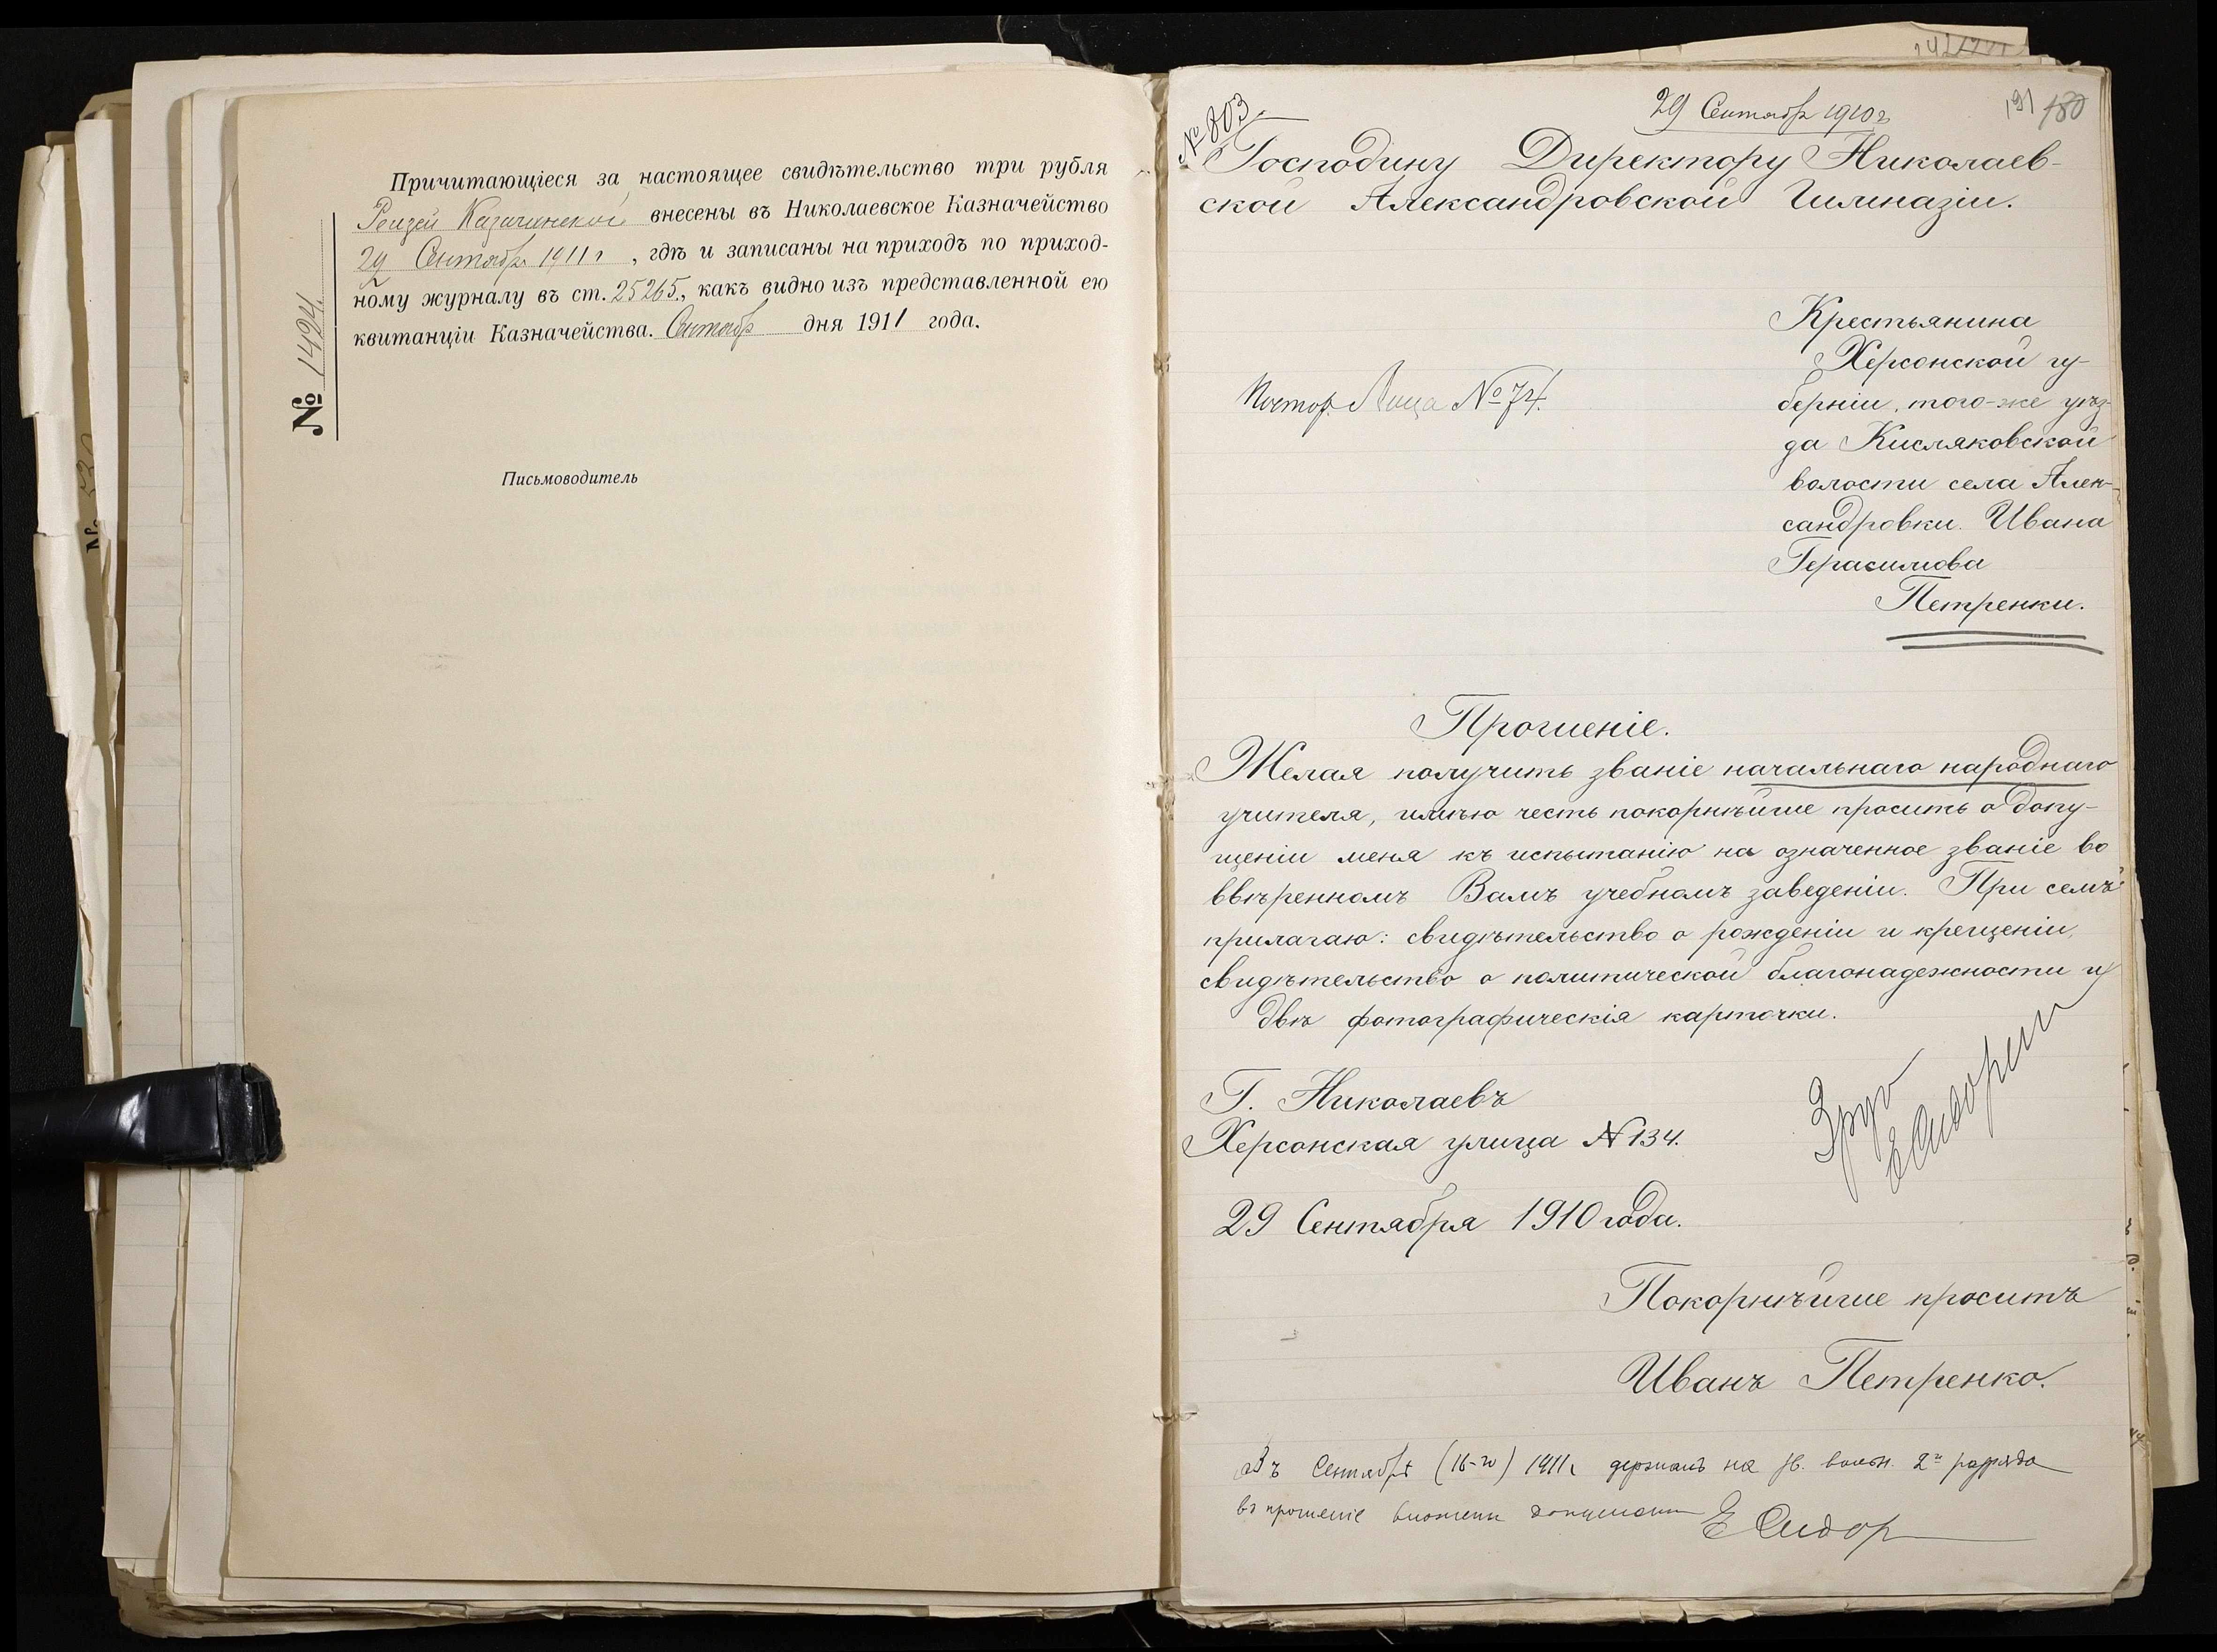 Причитающіеся за настоящее свидѣтельство три рубля
внесены въ Николаевское Казначейство
29 Сентябр 1911 г , гдѣ и записаны на приходъ по приход-
ному журналу въ ст. 25265., какъ видно изъ представленной ею
квитанціи Казначейства. Сентябр дня 1911 года.
№ 1424.
Письмоводитель
№ 803.
29 Сентябр 1910 г
191 180
Господину Директору Николаев-
ской Александровской Гимназіи.
Крестьянина
Херсонской гу-
берніи, того-же уѣз-
да Кисляковской
волости села Алек-
сандровки. Ивана
Герасимова
Петренки.
№ 74.
Прошеніе.
Желая получить званіе начальнаго народнаго
учителя, имѣю честь покорнѣйше просить о допу-
щеніи меня къ испытанію на означенное званіе во
ввѣренномъ Вамъ учебномъ заведеніи. При семъ
прилагаю: свидѣтельство о рожденіи и крещеніи,
свидѣтельство о политической благонадежности и
двѣ фотографическія карточки.
Г. Николаевъ
Херсонская улица № 134.
29 Сентября 1910 года.
Покорнѣйше проситъ
Иванъ Петренко.
Въ Сентябрѣ (16-го) 1911 г держалъ на 2го разряда
въ прошеніе вложены документы Е Сидор